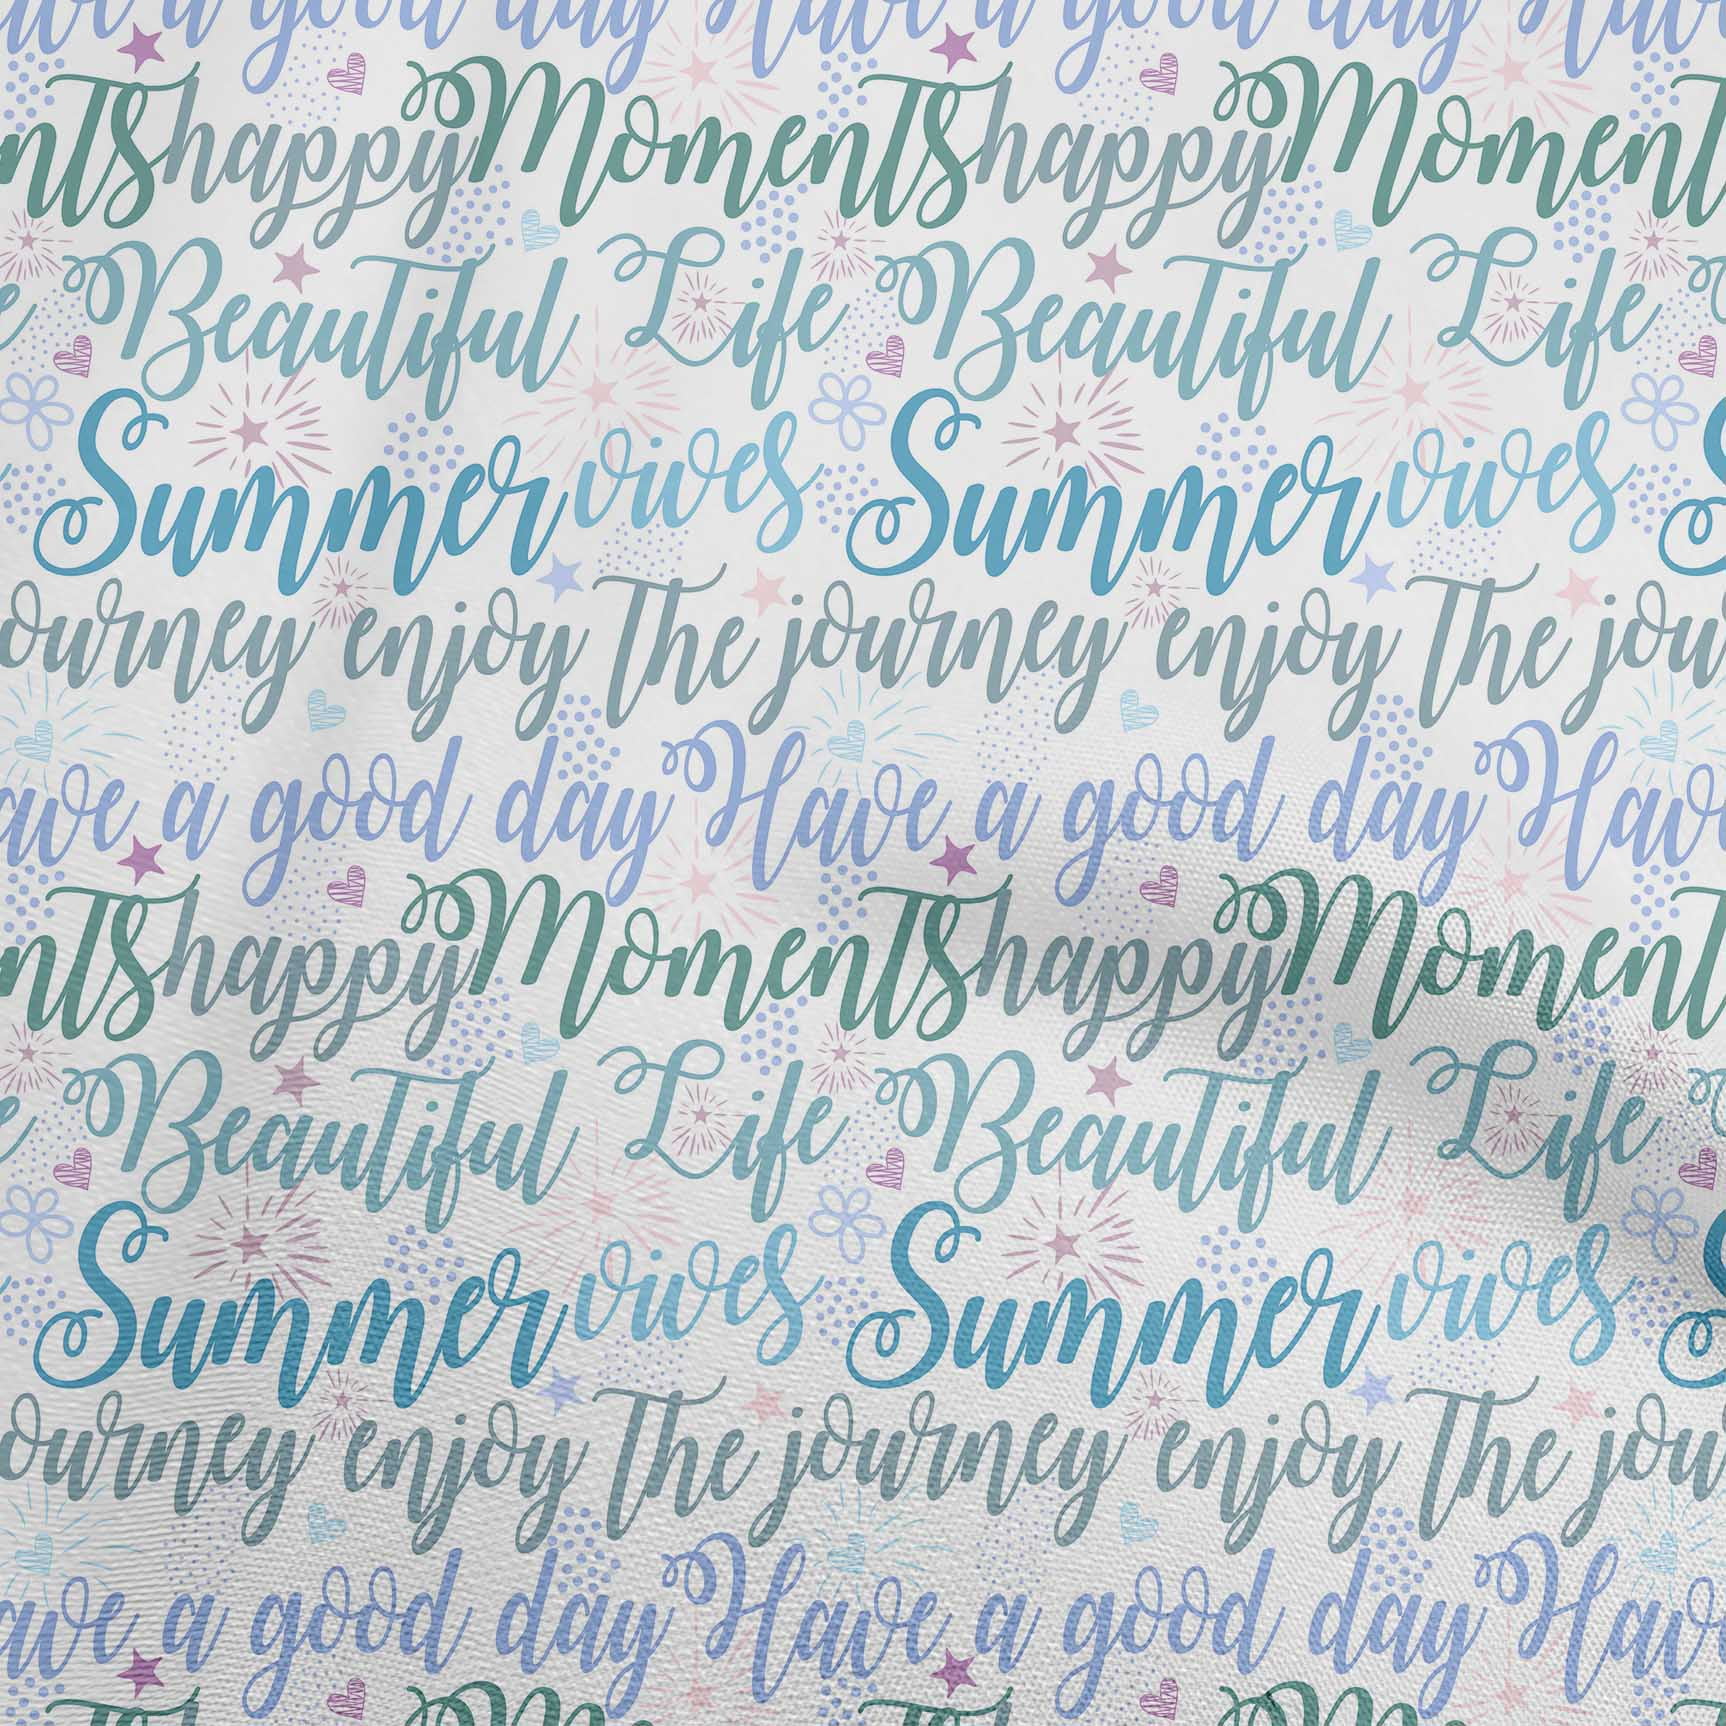 ave a good day Have a good day Hav
nTs happy MomenTs happy MomenT
e BeauTiful Life BeauTiful Life
Summer vives Summer vives S
ourney enjoy The journey enjoy The jou
ave a good day Have a good day Hav
nTs happy MomenTs happy MomenT
e BeauTiful Life BeauTiful Life
Summer vives Summer vives S
ourney enjoy The journey enjoy The jou
ave a good day Have a good day Hav